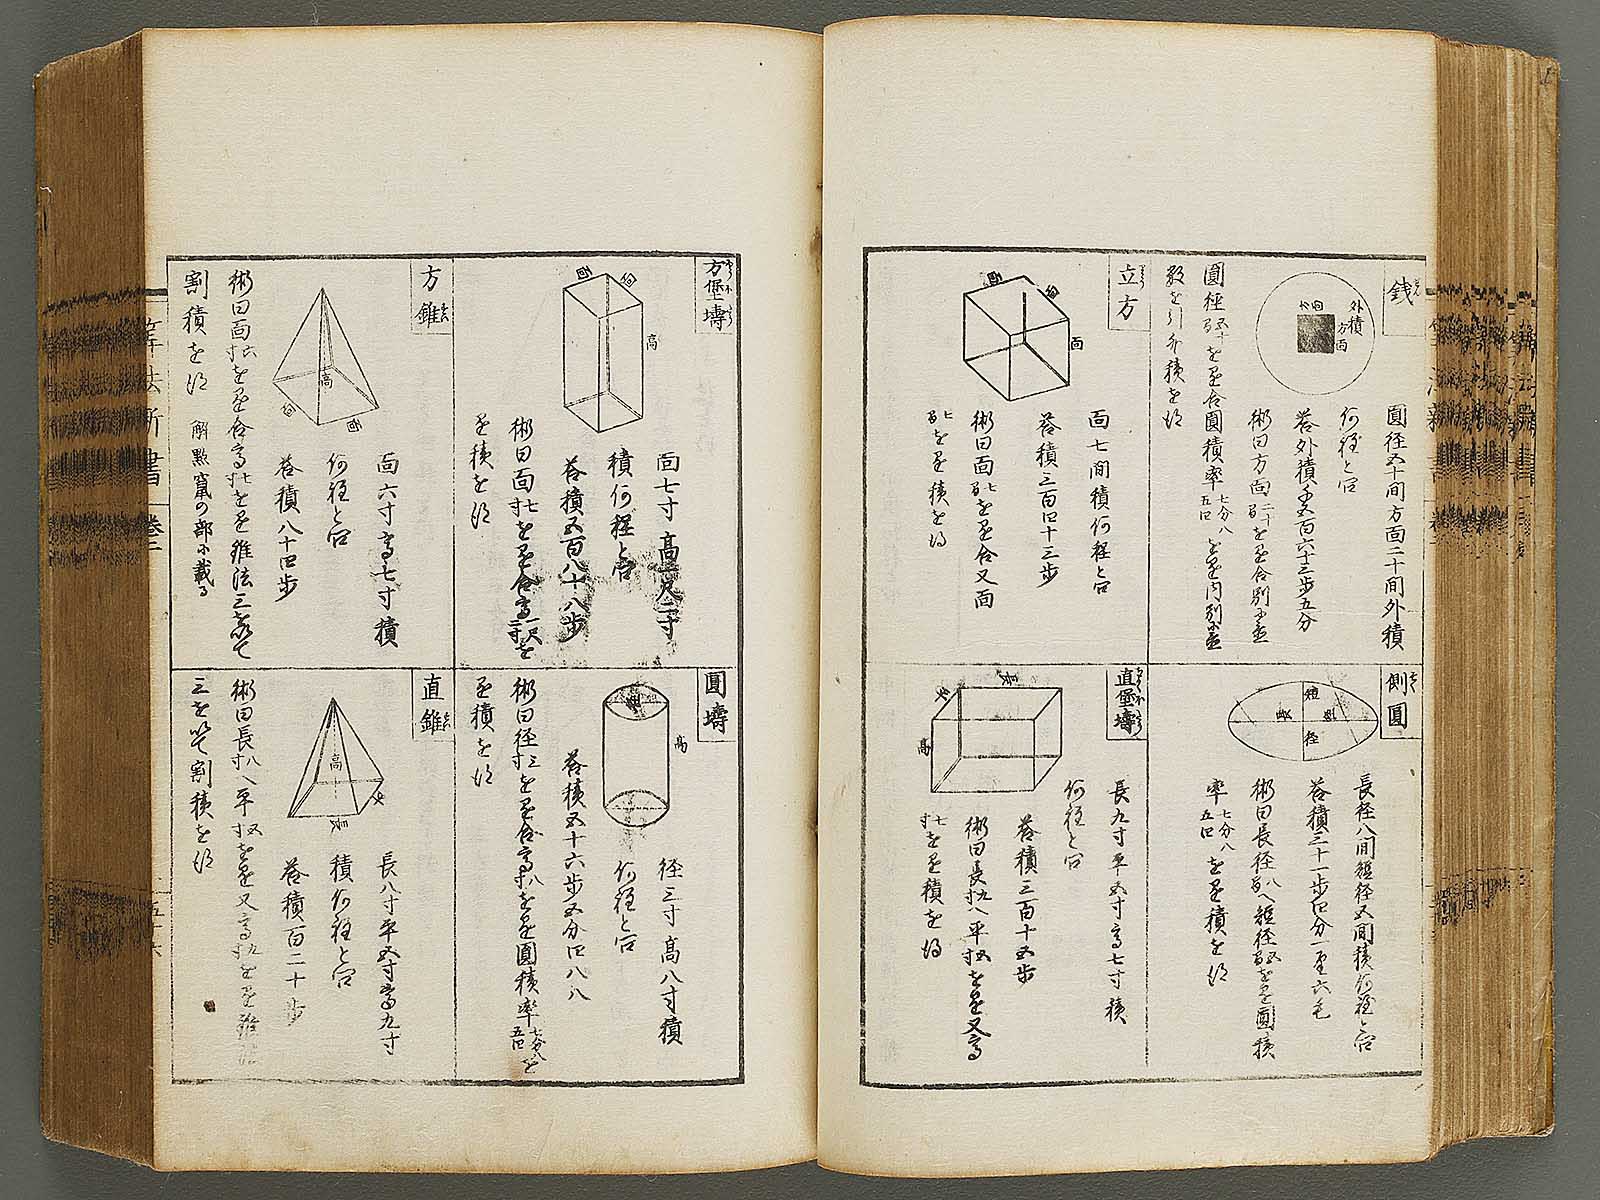 銭
外積
方面
圓径
圓径五十間方面二十間外積
何程と問
答外積千五百六十三歩五分
術曰方面二十間を自乗し別に置
圓径五十間を自乗し圓積率七分八五四
数を引外積を得
側圓
短
長
径
径
長径八間短径五間積何程と問
答積三十一歩四分一厘六毛
術曰長径八間へ短径五間を乗圓積
率七分八五四を乗積を得
立方
面
面
面
面七間積何程と問
答積三百四十三歩
術曰面七間を自乗し又面
七間を乗積を得
直堡壔
長
平
高
長九寸平五寸高七寸積
何程と問
答積三百十五歩
術曰長九寸へ平五寸を乗又高
七寸を乗積を得
方堡壔
面
面
高
面七寸高一尺二寸
積何程と問
答積五百八十八歩
術曰面七寸を自乗し高一尺二寸を
乗積を得
圓壔
径
高
径三寸高八寸積
何程と問
答積五十六歩五分四八八
術曰径三寸を自乗し高八寸を乗圓積率七分八五四を
乗積を得
方錐
高
面
面
面六寸高七寸積
何程と問
答積八十四歩
術曰面六寸を自乗し高七寸を乗錐法三を以て
割積を得 解點竄の部に載る
直錐
高
平
長
長八寸平五寸高九寸
積何程と問
答積百二十歩
術曰長八寸へ平五寸を乗又高九寸を乗錐法
三を以て割積を得
算法新書 巻二